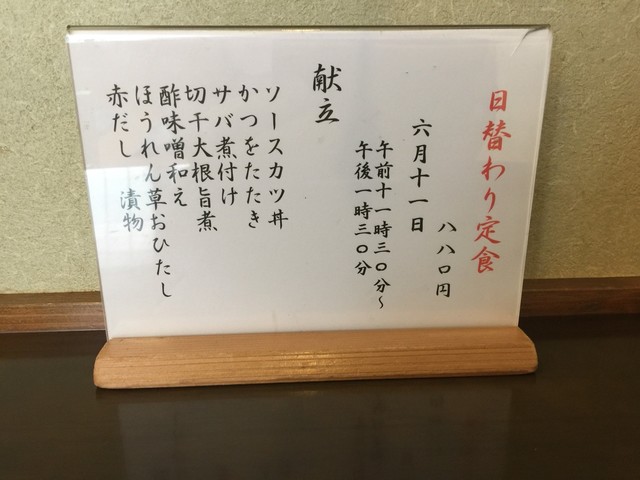 日替わり定食
八八〇円
六月十一日
午前十一時三〇分～
午後一時三〇分
献立
ソースカツ丼
かつをたたき
サバ煮付け
切干大根旨煮
酢味噌和え
ほうれん草おひたし
赤だし 漬物